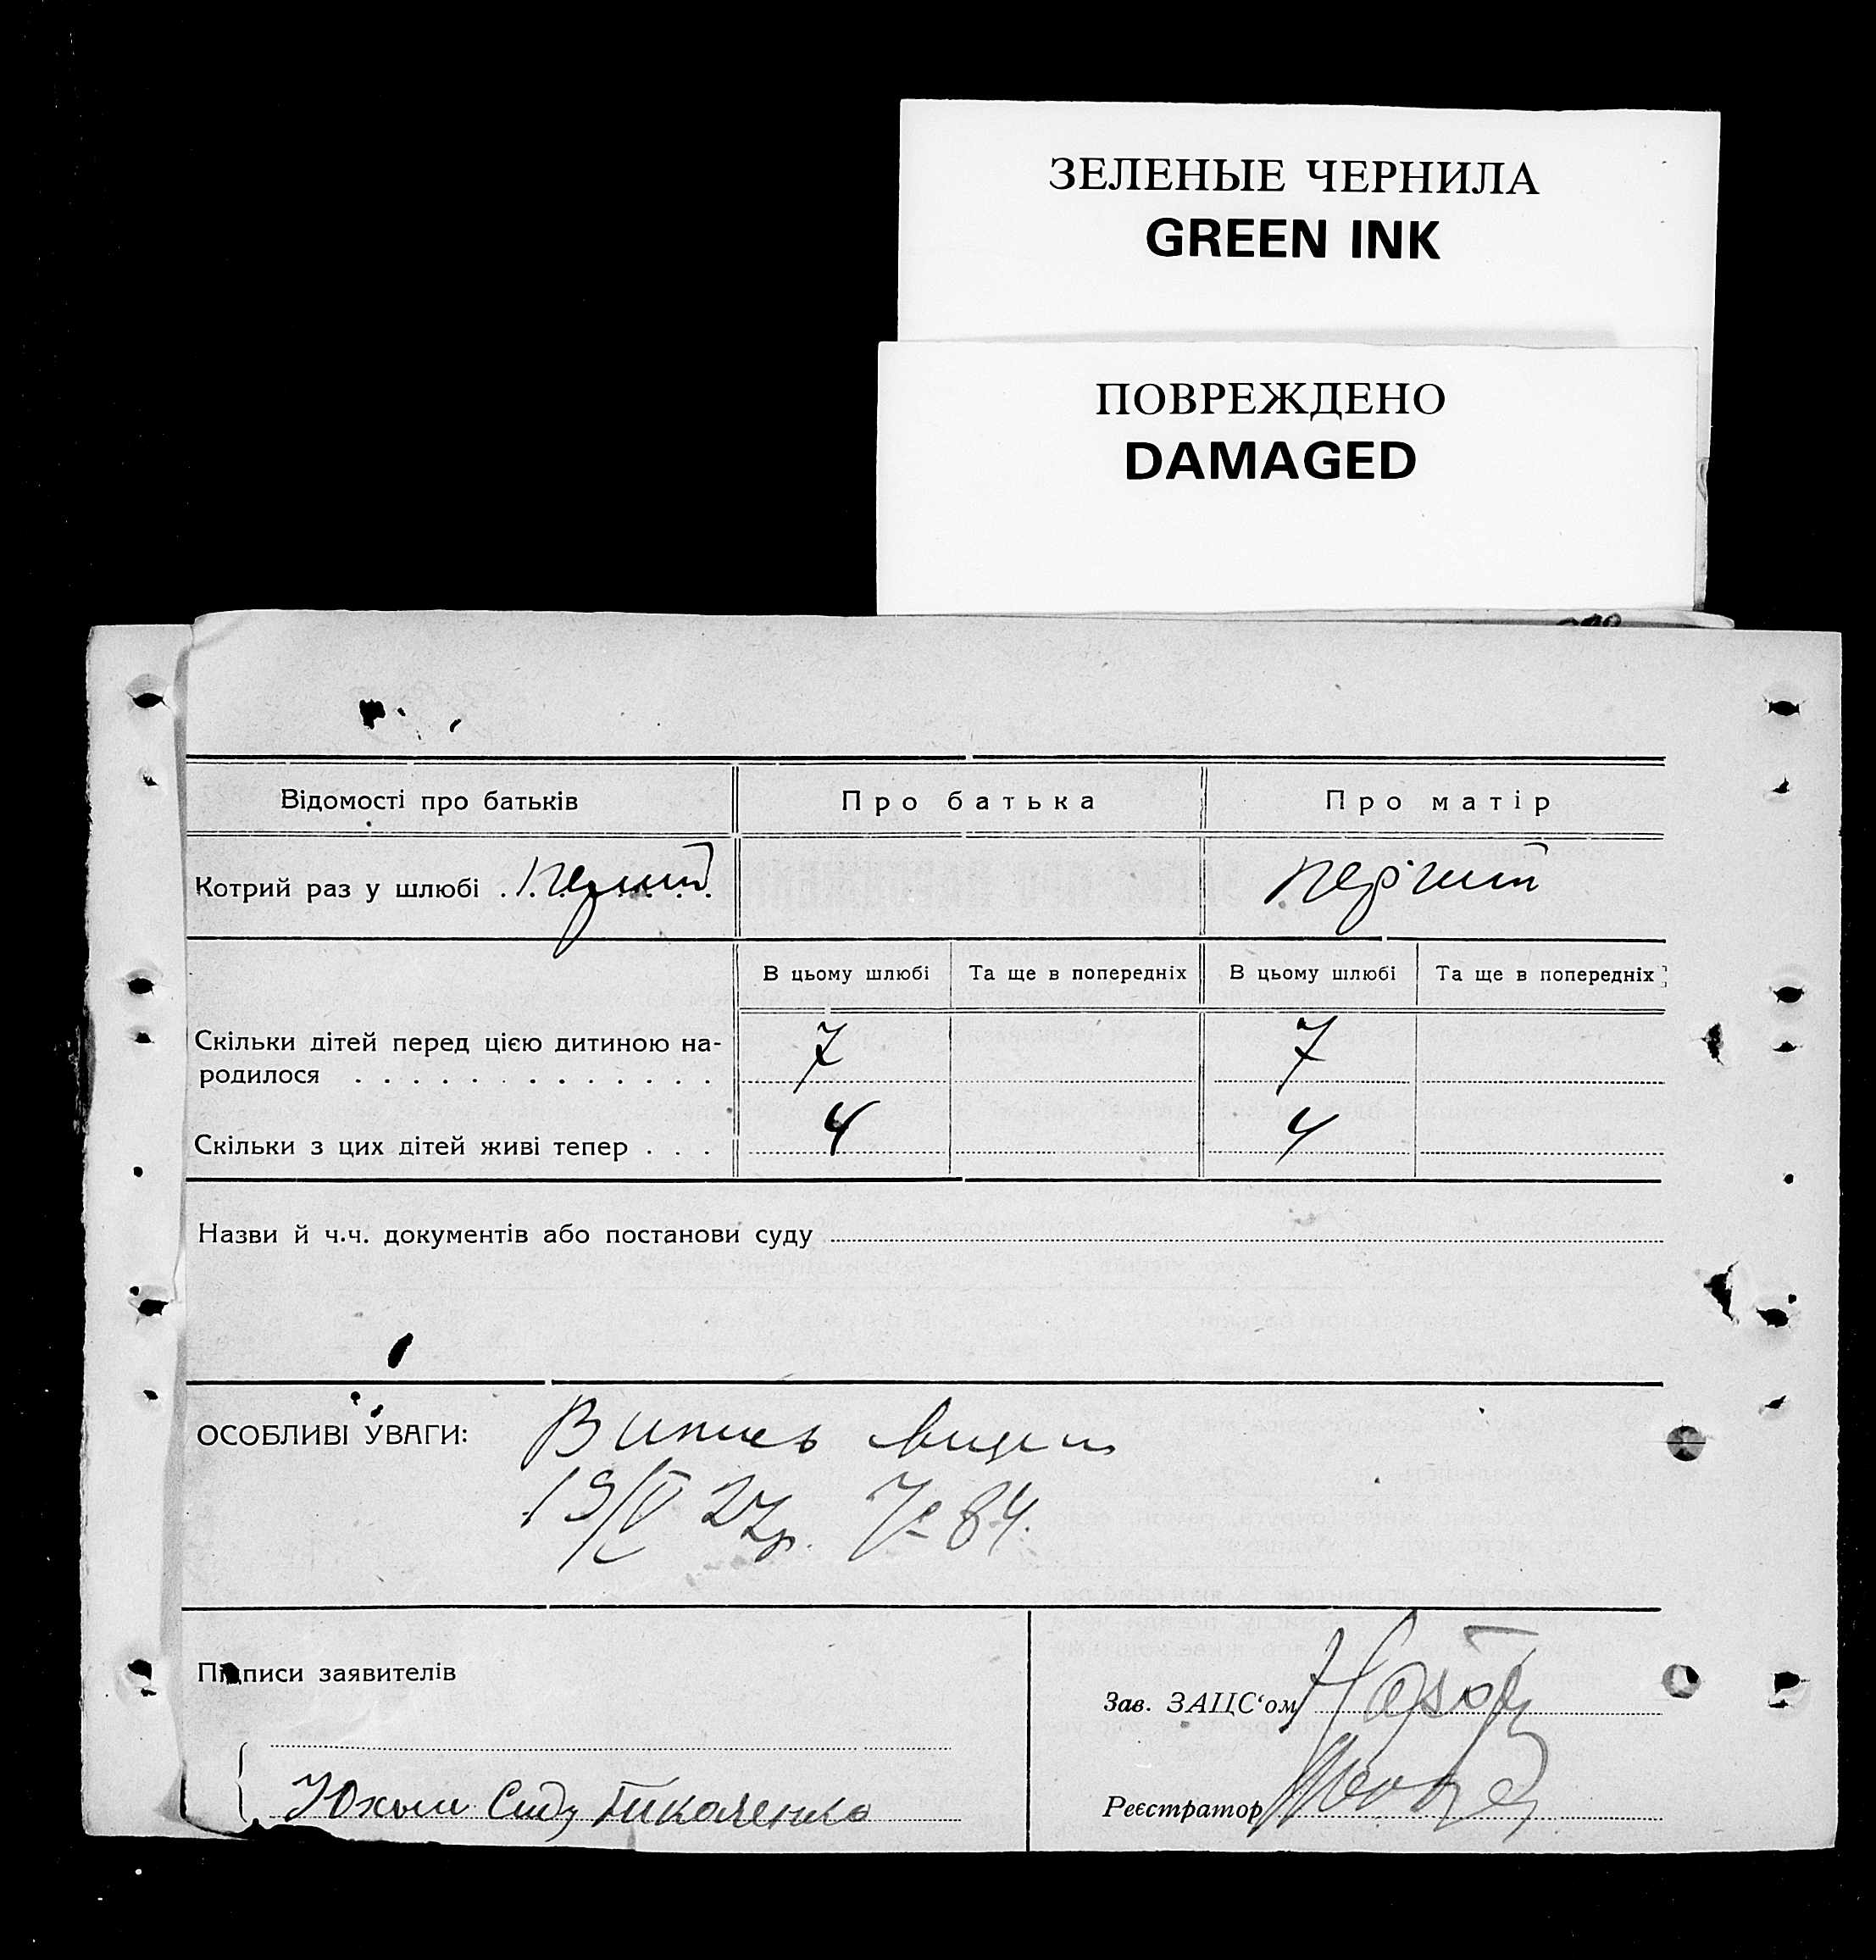 ЗЕЛЕНЫЕ ЧЕРНИЛА
GREEN INK
ПОВРЕЖДЕНО
DAMAGED
Відомості про батьків
Про батька
Про матір
Котрий раз у шлюбі перший
перший
В цьому шлюбі
Та ще в попередніх
В цьому шлюбі
Та ще в попередніх
Скільки дітей перед цією дитиною на-
родилося
7
7
Скільки з цих дітей живі тепер
4
4
Назви й ч.ч. документів або постанови суду
ОСОБЛИВІ УВАГИ:
Випись
19/V 27р. № 84.
Підписи заявителів
Зав. ЗАЦС‘ом
Юхим
Реєстратор